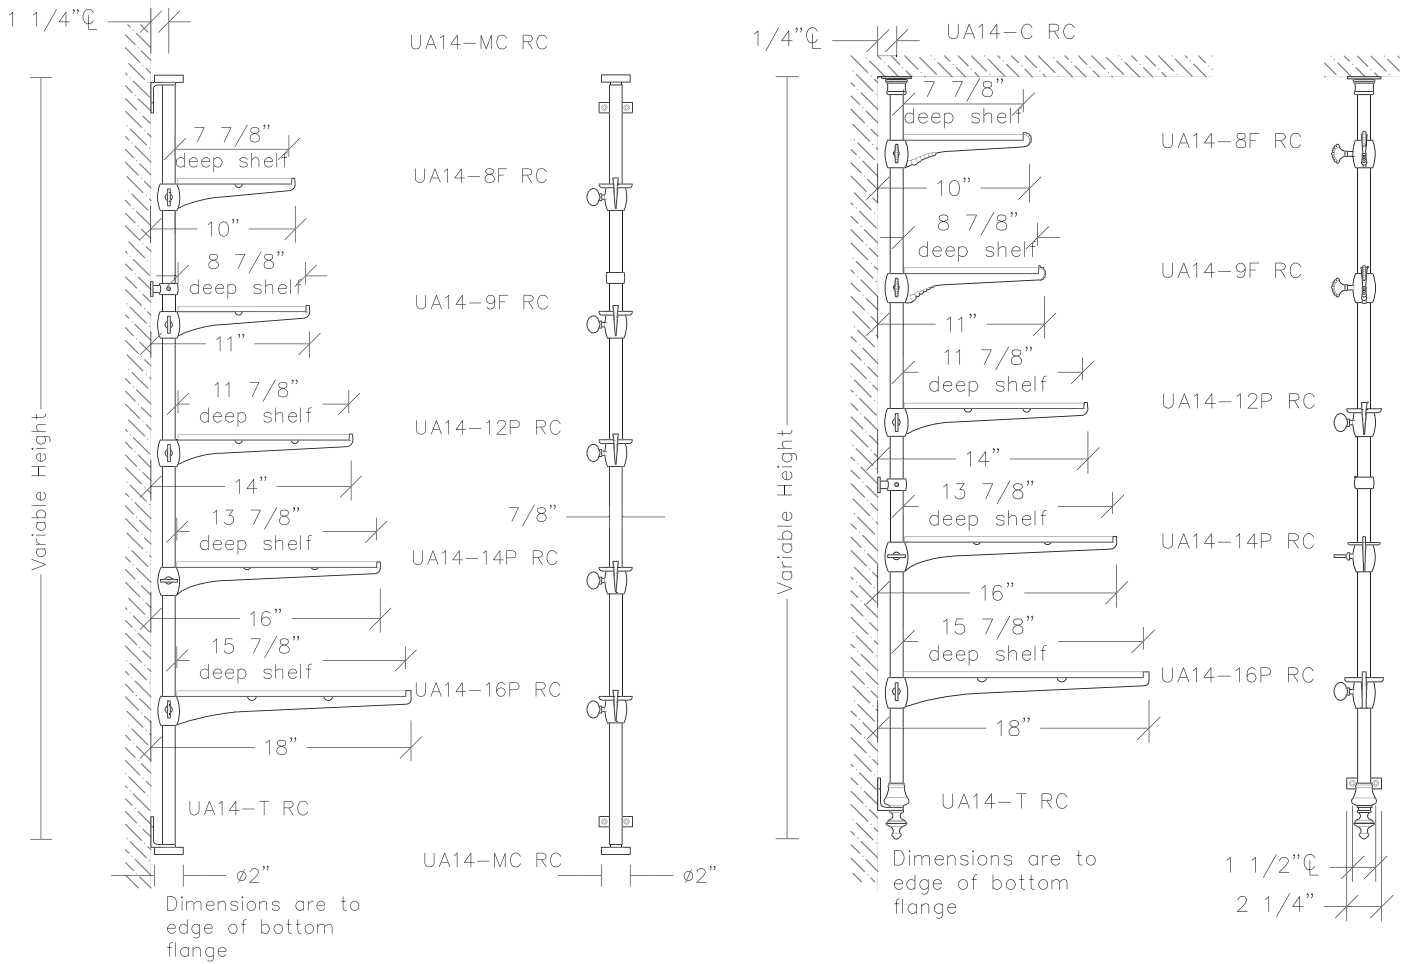 1 1/4”℄
UA14-MC RC
7 7/8”
deep shelf
UA14-8F RC
10”
8 7/8”
deep shelf
UA14-9F RC
11”
11 7/8”
deep shelf
UA14-12P RC
14”
Variable Height
13 7/8”
deep shelf
7/8”
UA14-14P RC
16”
15 7/8”
deep shelf
UA14-16P RC
18”
UA14-T RC
UA14-MC RC
ø2”
ø2”
Dimensions are to
edge of bottom
flange
1/4”℄
UA14-C RC
7 7/8”
deep shelf
UA14-8F RC
10”
8 7/8”
deep shelf
UA14-9F RC
11”
11 7/8”
deep shelf
UA14-12P RC
14”
Variable Height
13 7/8”
deep shelf
UA14-14P RC
16”
15 7/8”
deep shelf
UA14-16P RC
18”
UA14-T RC
Dimensions are to
edge of bottom
flange
1 1/2”℄
2 1/4”